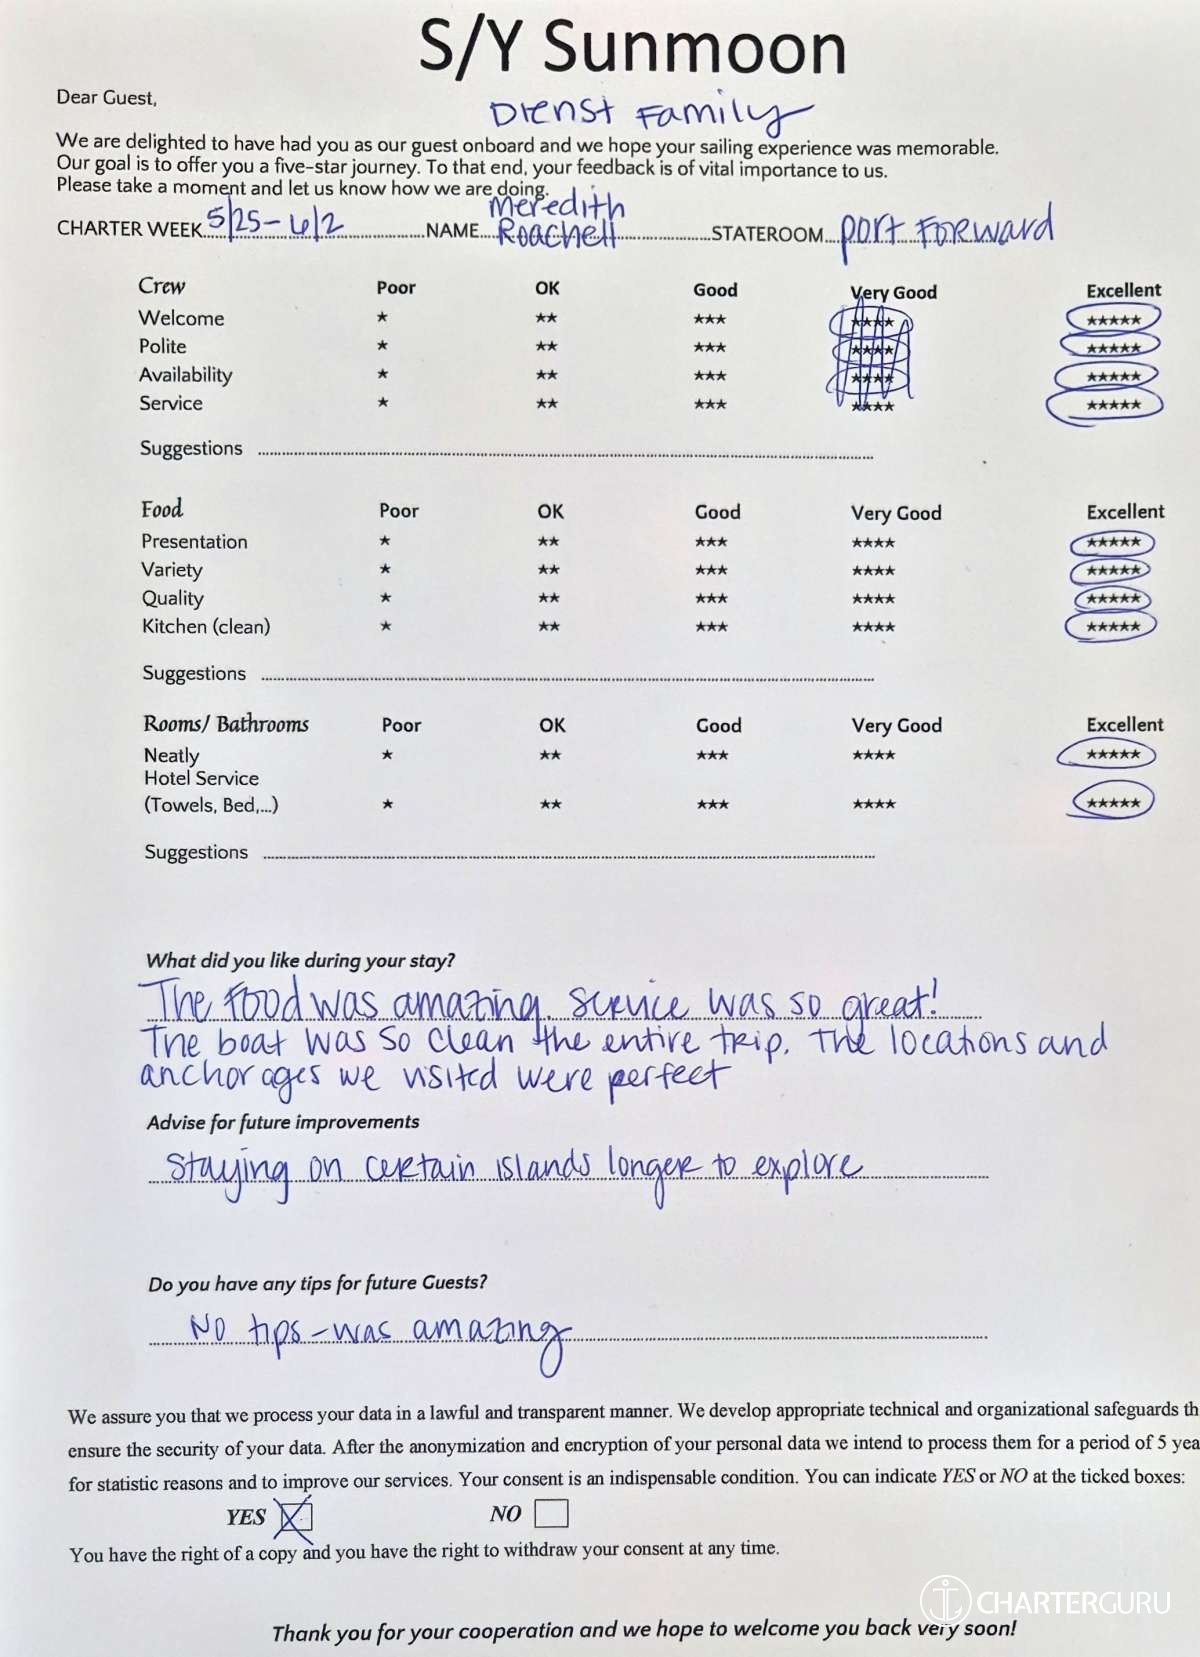 S/Y Sunmoon
Dear Guest,
Dienst Family
We are delighted to have had you as our guest onboard and we hope your sailing experience was memorable.
Our goal is to offer you a five-star journey. To that end, your feedback is of vital importance to us.
Please take a moment and let us know how we are doing.
CHARTER WEEK 5/25-6/2 NAME Meredith Roachell STATEROOM port Forward
Crew Poor OK Good Very Good Excellent
Welcome ★ ★★ ★★★ ★★★★ ★★★★★
Polite ★ ★★ ★★★ ★★★★ ★★★★★
Availability ★ ★★ ★★★ ★★★★ ★★★★★
Service ★ ★★ ★★★ ★★★★ ★★★★★
Suggestions
Food Poor OK Good Very Good Excellent
Presentation ★ ★★ ★★★ ★★★★ ★★★★★
Variety ★ ★★ ★★★ ★★★★ ★★★★★
Quality ★ ★★ ★★★ ★★★★ ★★★★★
Kitchen (clean) ★ ★★ ★★★ ★★★★ ★★★★★
Suggestions
Rooms/ Bathrooms Poor OK Good Very Good Excellent
Neatly ★ ★★ ★★★ ★★★★ ★★★★★
Hotel Service
(Towels, Bed,...) ★ ★★ ★★★ ★★★★ ★★★★★
Suggestions
What did you like during your stay?
The food was amazing. Service was so great!
The boat was so clean the entire trip. The locations and
anchorages we visited were perfect
Advise for future improvements
Staying on certain islands longer to explore
Do you have any tips for future Guests?
No tips - was amazing
We assure you that we process your data in a lawful and transparent manner. We develop appropriate technical and organizational safeguards th
ensure the security of your data. After the anonymization and encryption of your personal data we intend to process them for a period of 5 yea
for statistic reasons and to improve our services. Your consent is an indispensable condition. You can indicate YES or NO at the ticked boxes:
YES NO
You have the right of a copy and you have the right to withdraw your consent at any time.
CHARTERGURU
Thank you for your cooperation and we hope to welcome you back very soon!